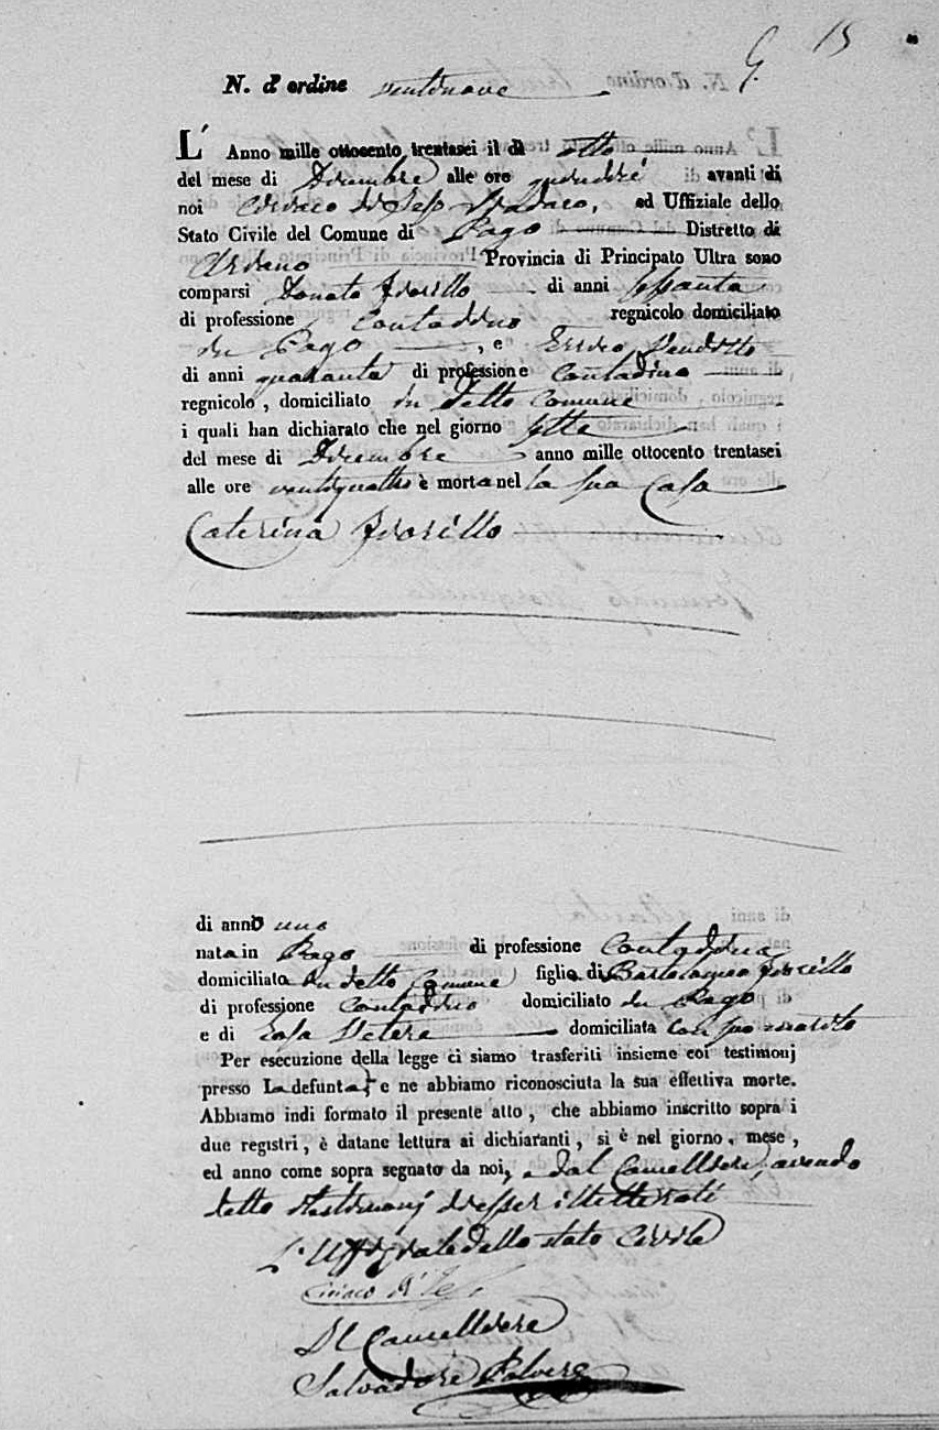 G. 15
N. d'ordine ventinove
L' Anno mille ottocento trentasei il dì otto
del mese di Dicembre alle ore quindici avanti di
noi Ciriaco di Sindaco, ed Uffiziale dello
Stato Civile del Comune di Pago Distretto di
Ariano Provincia di Principato Ultra sono
comparsi Donato Fiorillo di anni sessanta
di professione Contadino regnicolo domiciliato
in Pago, e Errico
di anni quaranta di professione Contadino
regnicolo, domiciliato in detto Comune
i quali han dichiarato che nel giorno sette
del mese di Dicembre anno mille ottocento trentasei
alle ore ventiquattro è morta nel la sua Casa
Caterina Fiorillo
di anno uno
nata in Pago di professione Contadina
domiciliata in detto Comune figlia di Bartolomeo Fiorillo
di professione Contadino domiciliato in Pago
e di Rosa Vetere domiciliata con suo marito
Per esecuzione della legge ci siamo trasferiti insieme coi testimonj
presso La defunta, e ne abbiamo riconosciuta la sua effettiva morte.
Abbiamo indi formato il presente atto, che abbiamo inscritto sopra i
due registri, è datane lettura ai dichiaranti, si è nel giorno, mese,
ed anno come sopra segnato da noi, e dal Cancelliere, avendo
detto i testimonj d'esser illetterati
L'Uffiziale dello stato Civile
Ciriaco di
Il Cancelliere
Salvadore Polvere